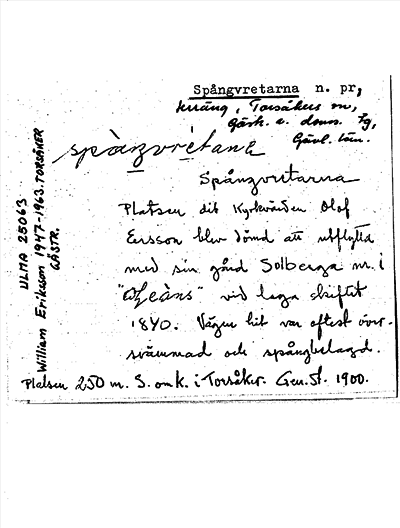 Spångvretarna n. pr,
terräng, Torsåkers sn,
Gästr. o. doms. sg,
Gävl. län.
spàŋvrétana
Spångvretarna
Platsen dit Kyrkvärden Olof
Ersson blev dömd att utflytta
med sin gård Solberga nr. i
vid laga skiftet
1840. Vägen hit var oftest över-
svämmad och spångbelagd.
Platsen 250 m. S. om k. i Torsåker. Gen.St. 1900.
ULMA 25063
William Eriksson 1947-1963. TORSÅKER
GÄSTR.